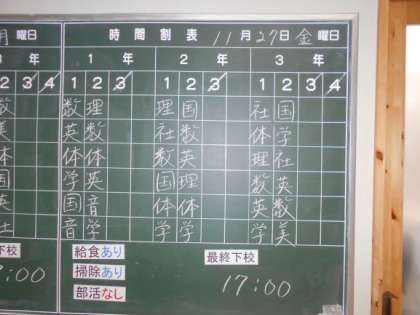 月 曜日
時間割表 11月27日金曜日
3 年
1年 2年 3年
1 2 3 4
1 2 3 1 2 3 4 1 2 3 4
数 数 理 理 国 社 国
美 英 数 社 数 体 学
体 体 体 数 英 理 社
国 学 英 国 理 数 英
英 国 音 体 体 英 数
社 音 学 学 学 学 美
下校 給食あり 最終下校
:00 掃除あり 17:00
部活なし